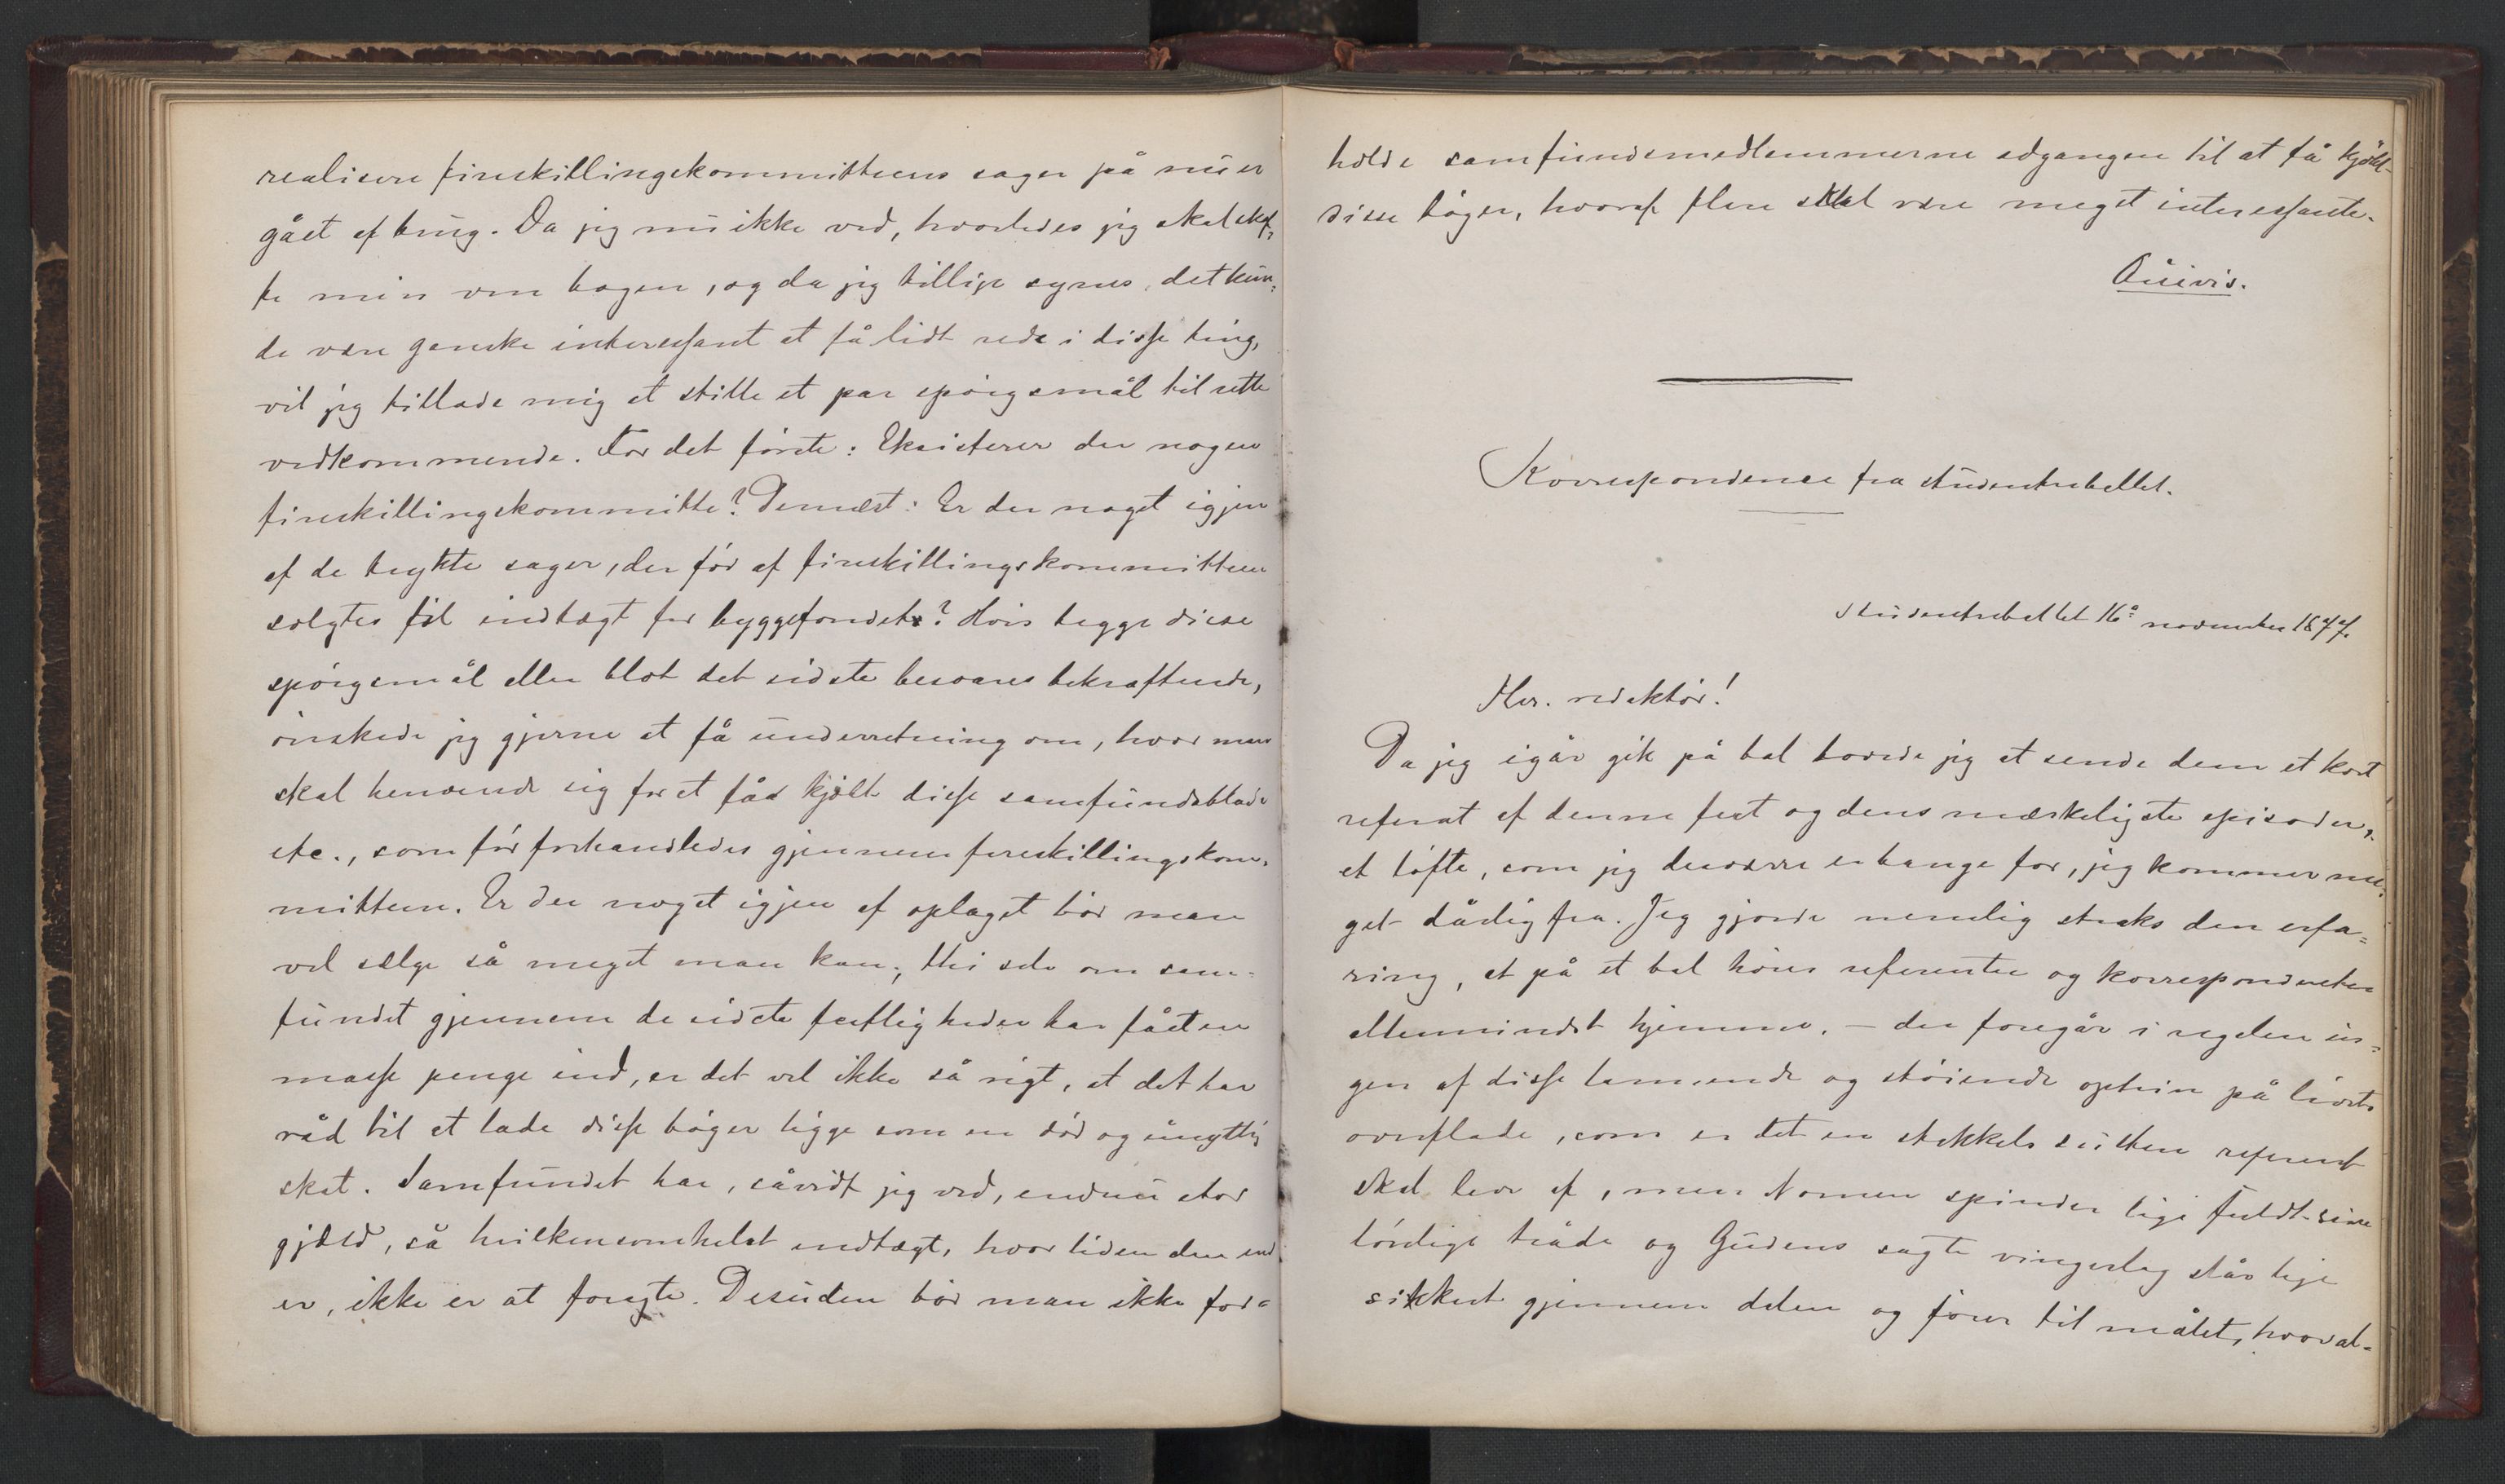 realisere fireskillingskommitteens sager på nu er
gået af brug. Da jeg nu ikke ved, hvorledes jeg skal skaf,
fe min ven bogen, og da jeg tillige synes, det kun-
de være ganske interessant at få lidt rede i disse ting,
vil jeg tillade mig at stille et par spörgsmål til rette
vedkommende. For det förste: Eksisterer der nogen
fireskillingskommitte? Dernæst: Er der noget igjen
af de trykte sager, der för af fireskillingskommitteen
solgtes til indtægt for byggefondet? Hvis begge disse
spörgsmål eller blot det sidste besvares bekræftende,
önskede jeg gjerne at få underretning om, hvor man
skal henvende sig for at få kjöbt disse samfundsblade
etc., som för forhandledes gjennem fireskillingskom-
mitteen. Er der noget igjen af oplaget bör man
vel sælge så meget man kan; thi selv om sam-
fundet gjennem de sidste festligheder har fået en
masse penge ind, er det vel ikke så rigt, at det har
råd til at lade disse böger ligge som en död og unyttig
skat. Samfundet har, såvidt jeg ved, endnu stor
gjæld, så hvilkensomhelst indtægt, hvor liden den end
er, ikke er at foragte. Desuden bör man ikke for-
holde samfundsmedlemmerne adgangen til at få kjöbt
disse böger, hvoraf flere skal være meget interessante.
Quivis.
Korrespondence fra studenterballet.
Studenterballet 16de november 1877.
Hr. redaktör!
Da jeg igår gik på bal lovede jeg at sende dem et kort
referat af denne fest og dens mærkeligste episoder,
et löfte, som jeg desværre er bange for, jeg kommer me-
get dårlig fra. Jeg gjorde nemlig straks den erfa-
ring, at på et bal hörer referenter og korrespondenter
allermindst hjemme. – der foregår i regelen in-
gen af disse larmende og stöiende optrin på livets
overflade, som er det en stakkels sulten referent
skal leve af, men Nornen spinder lige fuldt sine
lönlige tråde og Gudens sagte vingeslag slår lige
sikkert gjennem dalen og förer til målet, hvor al-